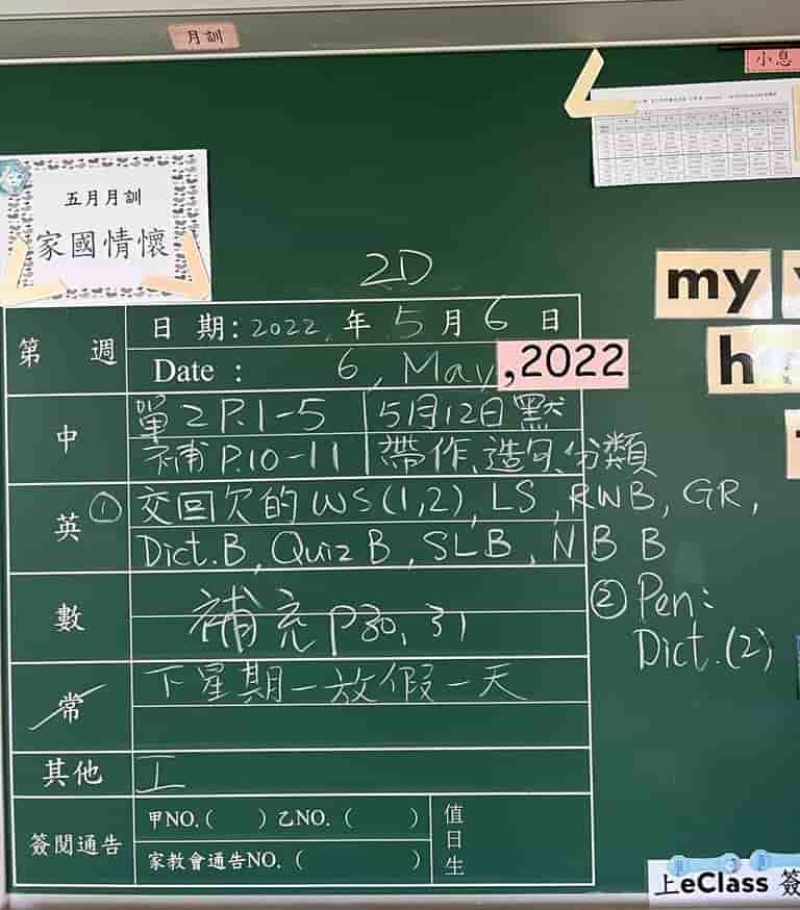 月訓
小息
五月月訓
家國情懷
my
h
2D
第 週
日 期: 2022 年 5 月 6 日
Date : 6, May ,2022
中
單2 P.1-5 5月12日默
補 P.10-11 帶作、造句、分類
英
① 交回欠的 WS (1,2), LS, RWB, GR,
Dict.B, Quiz B, SLB, NB B
② Pen:
Dict.(2)
數
補充 P30, 31
常
下星期一放假一天
其他
工
簽閱通告
甲NO.( ) 乙NO. ( )
家教會通告NO. ( )
值日生
上eClass 簽